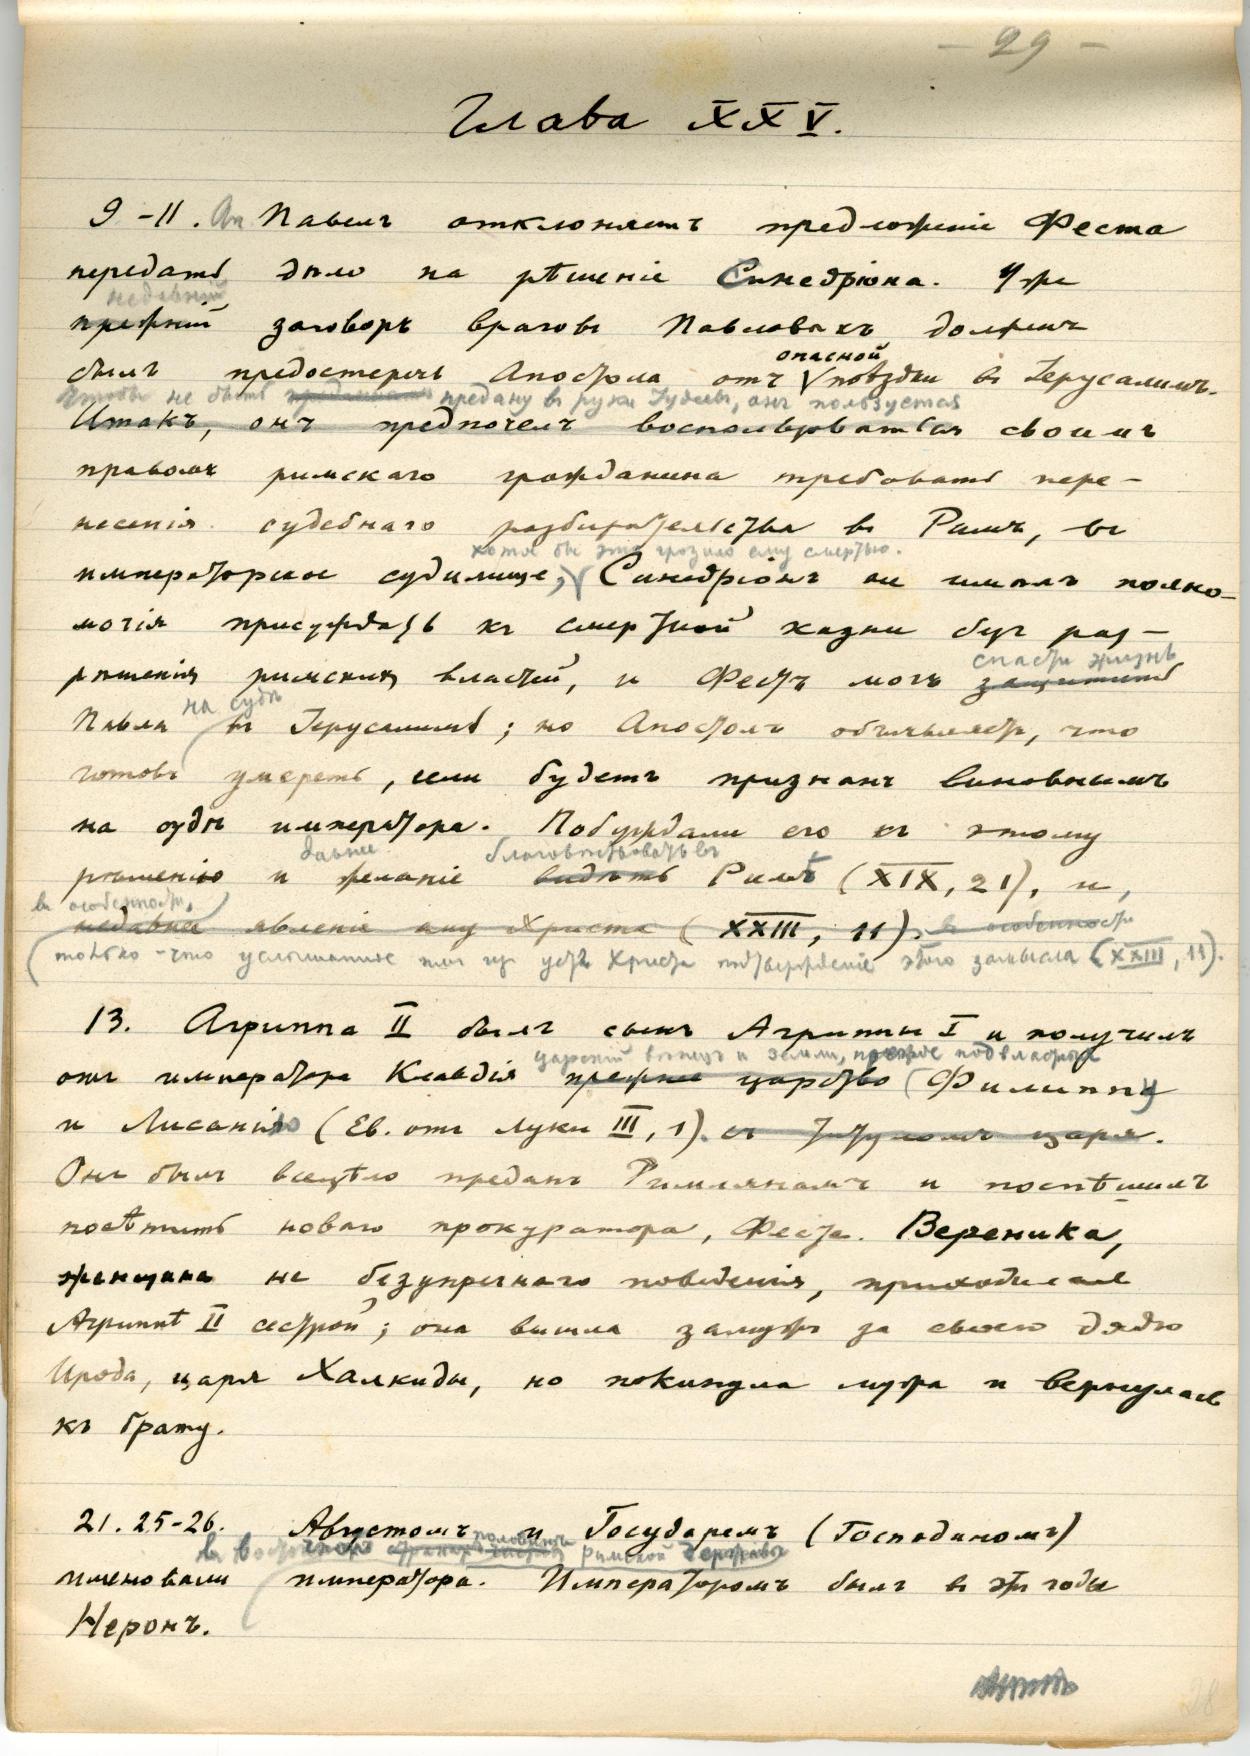 - 29 -
Глава XXV.
9-11. Ап Павелъ отклоняетъ предложеніе Феста
передать дѣло на рѣшеніе Синедріона. Уже
недавній
прежній заговоръ враговъ Павловыхъ долженъ
опасной
былъ предостеречь Апостола отъ поѣздки въ Іерусалимъ.
Чтобы не быть предану въ руки Іудеевъ, онъ пользуется
Итакъ, онъ предпочелъ воспользоваться своимъ
правомъ римскаго гражданина требовать пере-
несенія судебнаго разбирательства въ Римъ, въ
хотя бы это грозило ему смертью.
императорское судилище, Синедріонъ не имѣлъ полно-
мочія присуждать къ смертной казни безъ раз-
рѣшенія римскихъ властей, и Фестъ могъ
спасти жизнь
защитить
на судѣ
Павла въ Іерусалимѣ; но Апостолъ объявляетъ, что
готовъ умереть, если будетъ признанъ виновнымъ
на судѣ императора. Побуждали его къ этому
давнее благовѣствовать въ
рѣшенію и желаніе видѣть Римѣ (XIX, 21), и,
въ особенности,
недавнее явленіе ему Христа (XXIII, 11). въ особенности
только-что услышанное имъ изъ устъ Христа подтвержденіе этого замысла (XXIII, 11).
13. Агриппа II былъ сынъ Агриппы I и получилъ
царскій вѣнецъ и земли, прежде подвластныя
отъ императора Клавдія прежнее царство Филиппу
и Лисанію (Ев. отъ Луки III, 1). съ титуломъ царя.
Онъ былъ всецѣло преданъ Римлянамъ и поспѣшилъ
посѣтить новаго прокуратора, Феста. Вереника,
женщина не безупречнаго поведенія, приходилась
Агриппѣ II сестрой; она вышла замужъ за своего дядю
Ирода, царя Халкиды, но покинула мужа и вернулась
къ брату.
21. 25-26. Августомъ и Государемъ (Господиномъ)
въ восточной половинѣ римской державы
именовали императора. Императоромъ былъ въ эти годы
Неронъ.
28